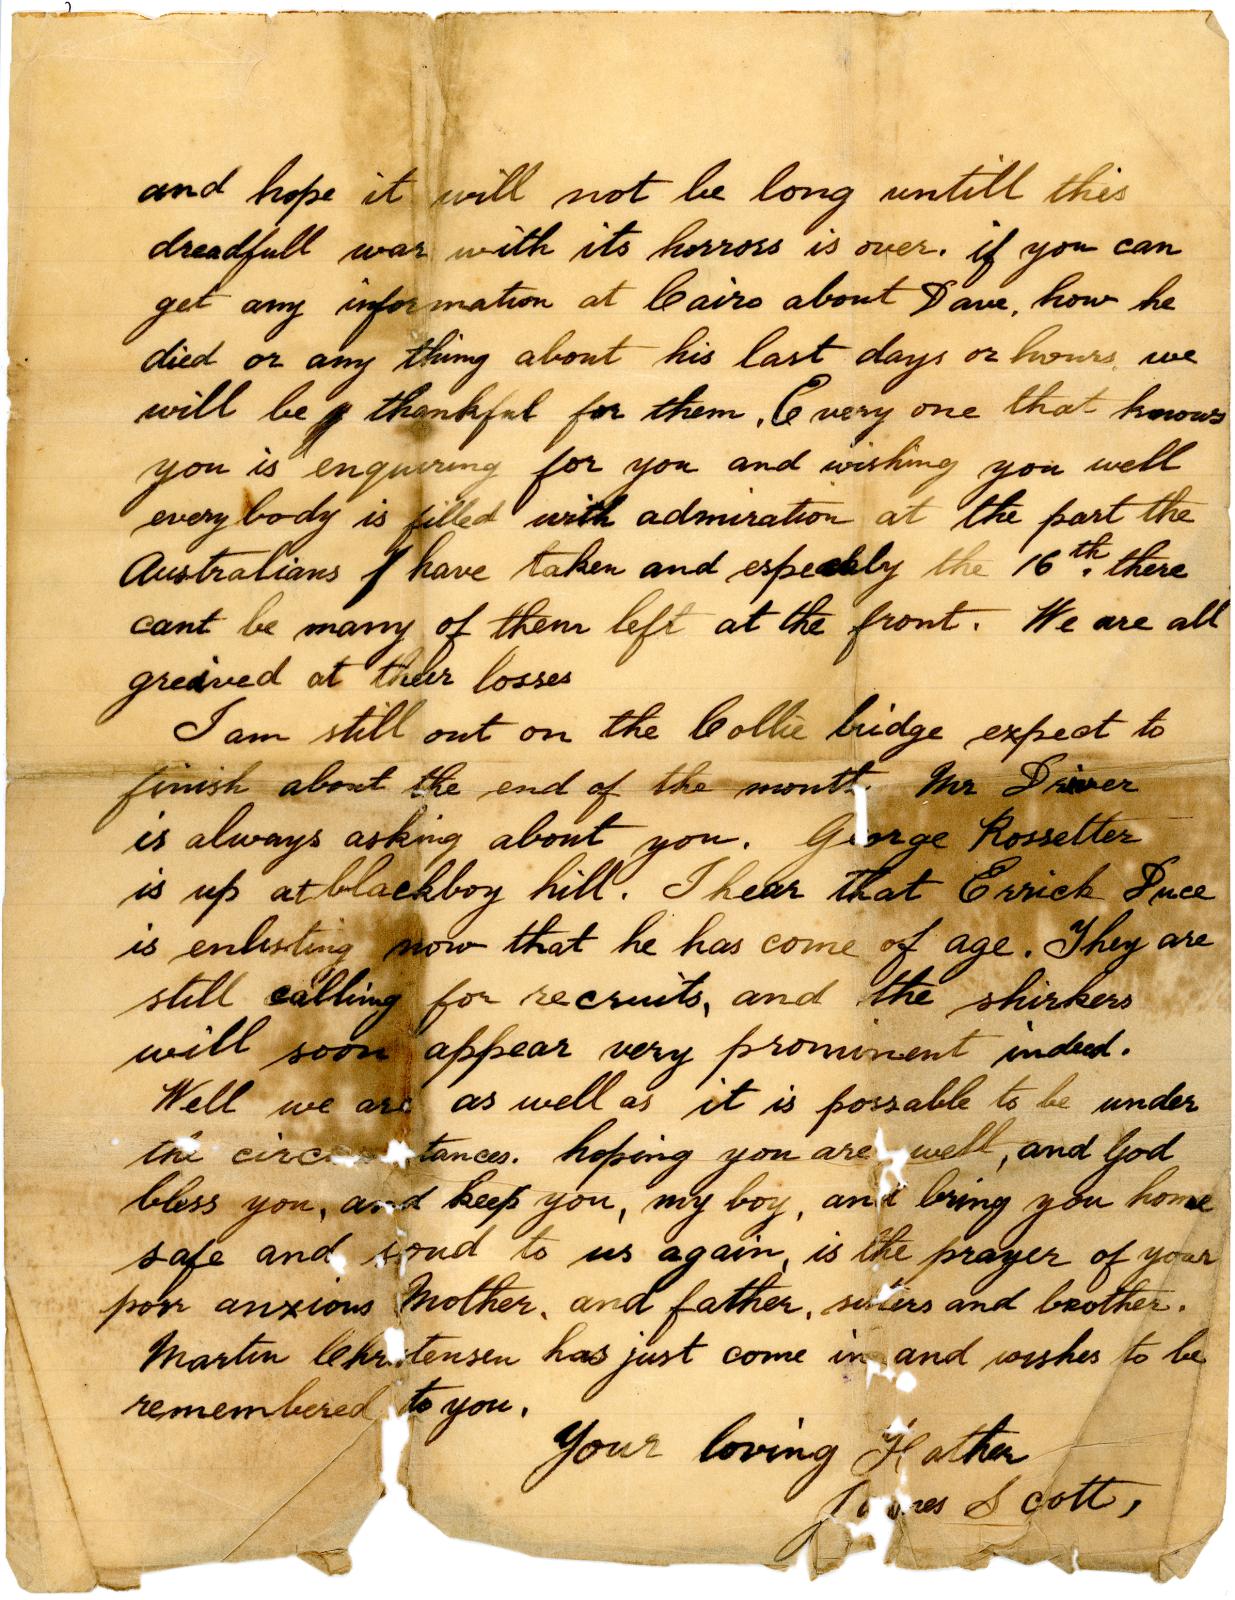 and hope it will not be long untill this
dreadfull war with its horrors is over. if you can
get any information at Cairo about Dave, how he
died or any thing about his last days or hours, we
will be thankful for them. Every one that knows
you is enquiring for you and wishing you well
everybody is filled with admiration at the part the
Australians have taken and especably the 16th. there
cant be many of them left at the front. We are all
greived at their losses
I am still out on the Collie bridge expect to
finish about the end of the month. Mr Driver
is always asking about you. George Rossetter
is up at blackboy hill. I hear that Errick Duce
is enlisting now that he has come of age. They are
still calling for recruits, and the shirkers
will soon appear very prominent indeed.
Well we are as well as it is possable to be under
the circumstances. hoping you are well, and God
bless you, and keep you, my boy, and bring you home
safe and soud to us again, is the prayer of your
poor anxious Mother, and father, sisters and brother.
Martin Christensen has just come in and wishes to be
remembered to you.
Your loving Father
James Scott,